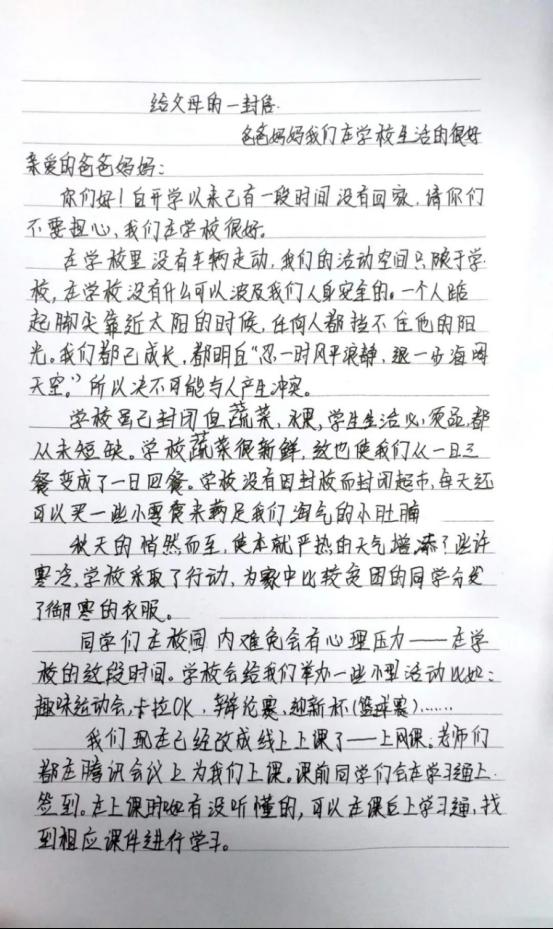 给父母的一封信
爸爸妈妈我们在学校生活的很好
亲爱的爸爸妈妈：
你们好！自开学以来已有一段时间没有回家，请你们
不要担心，我们在学校很好。
在学校里没有车辆走动，我们的活动空间只限于学
校，在学校没有什么可以波及我们人身安全的。一个人踮
起脚尖靠近太阳的时候，任何人都挡不住他的阳
光。我们都已成长，都明白“忍一时风平浪静，退一步海阔
天空。”所以决不可能与人产生冲突。
学校虽已封闭但蔬菜，水果，学生生活必须品都
从未短缺。学校蔬菜很新鲜，这也使我们从一日三
餐变成了一日四餐。学校没有因封校而封闭超市，每天还
可以买一些小零食来满足我们淘气的小肚腩
秋天的悄然而至，使本就严热的天气增添了些许
寒冷，学校采取了行动，为家中比较贫困的同学分发
了御寒的衣服。
同学们在校园内难免会有心理压力——在学
校的这段时间。学校会给我们举办一些小型活动比如：
趣味运动会，卡拉OK，辩论赛，迎新杯(篮球赛)……
我们现在已经改成线上上课了——上网课。老师们
都在腾讯会议上为我们上课。课前同学们会在学习通上
签到。在上课时如有没听懂的，可以在课后上学习通，找
到相应课件进行学习。